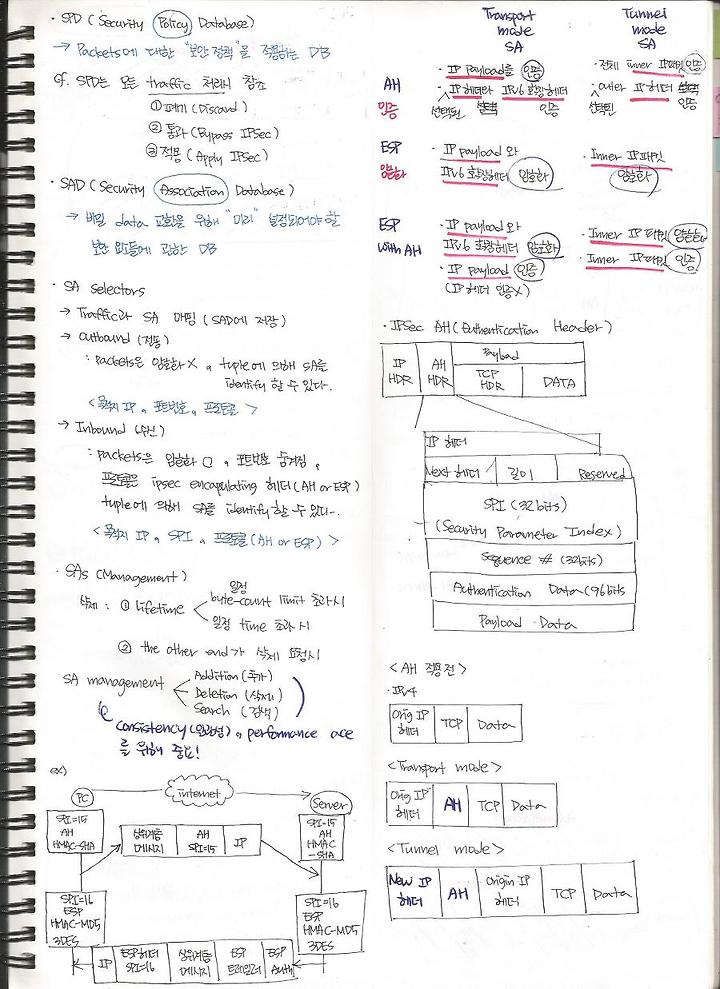 · SPD (Security Policy Database)
→ Packets에 대한 "보안정책"을 적용하는 DB
cf. SPD는 모든 traffic 처리시 참조
① 폐기 (Discard)
② 통과 (Bypass IPSec)
③ 적용 (Apply IPSec)
· SAD (Security Association Database)
→ 매일 data 교환을 위해 "미리" 설정되어야 할
보안 요소들에 관한 DB
· SA selectors
→ Traffic과 SA 매핑 (SAD에 저장)
→ outbound (전송)
: packets은 암호화 X, tuple에 의해 SA를
identify 할 수 있다.
<목적지 IP, 포트번호, 프로토콜>
→ Inbound (수신)
: packets은 암호화 O, 포트번호 숨겨짐,
프로토콜은 ipsec encapulating 헤더(AH or ESP)
tuple에 의해 SA를 identify 할 수 있다.
<목적지 IP, SPI, 프로토콜(AH or ESP)>
· SAs (Management)
삭제 : ① lifetime
일정
byte-count limit 초과시
일정 time 초과시
② the other end가 삭제 요청시
SA management
Addition (추가)
Deletion (삭제)
Search (검색)
consistency (일관성), performance
를 위해 중요!
ex)
PC
internet
Server
SPI=15
AH
HMAC-SHA
상위계층
메시지
AH
SPI=15
IP
SPI=15
AH
HMAC
-SHA
SPI=16
ESP
HMAC-MD5
3DES
SPI=16
ESP
HMAC-MD5
3DES
IP
ESP헤더
SPI=16
상위계층
메시지
ESP
트레일러
ESP
Auth
Transport
mode
SA
Tunnel
mode
SA
AH
인증
· IP payload를 인증
· IP 헤더와 IPv6 확장헤더
선택된 선택 인증
· 전체 inner IP패킷 인증
· outer IP 헤더
선택된 인증
ESP
암호화
· IP payload와
IPv6 확장헤더 암호화
· Inner IP패킷
암호화
ESP
with AH
· IP payload와
IPv6 확장헤더 암호화
· IP payload 인증
(IP헤더 인증X)
· Inner IP 패킷 암호화
· Inner IP패킷 인증
· IPSec AH (Authentication Header)
IP
HDR
AH
HDR
Payload
TCP
HDR
DATA
IP 헤더
Next 헤더
길이
Reserved
SPI (32bits)
(Security Parameter Index)
Sequence # (32bits)
Authentication Data (96bits
Payload Data
<AH 적용전>
· IPv4
Orig IP
헤더
TCP
Data
<Transport mode>
Orig IP
헤더
AH
TCP
Data
<Tunnel mode>
New IP
헤더
AH
Origin IP
헤더
TCP
Data